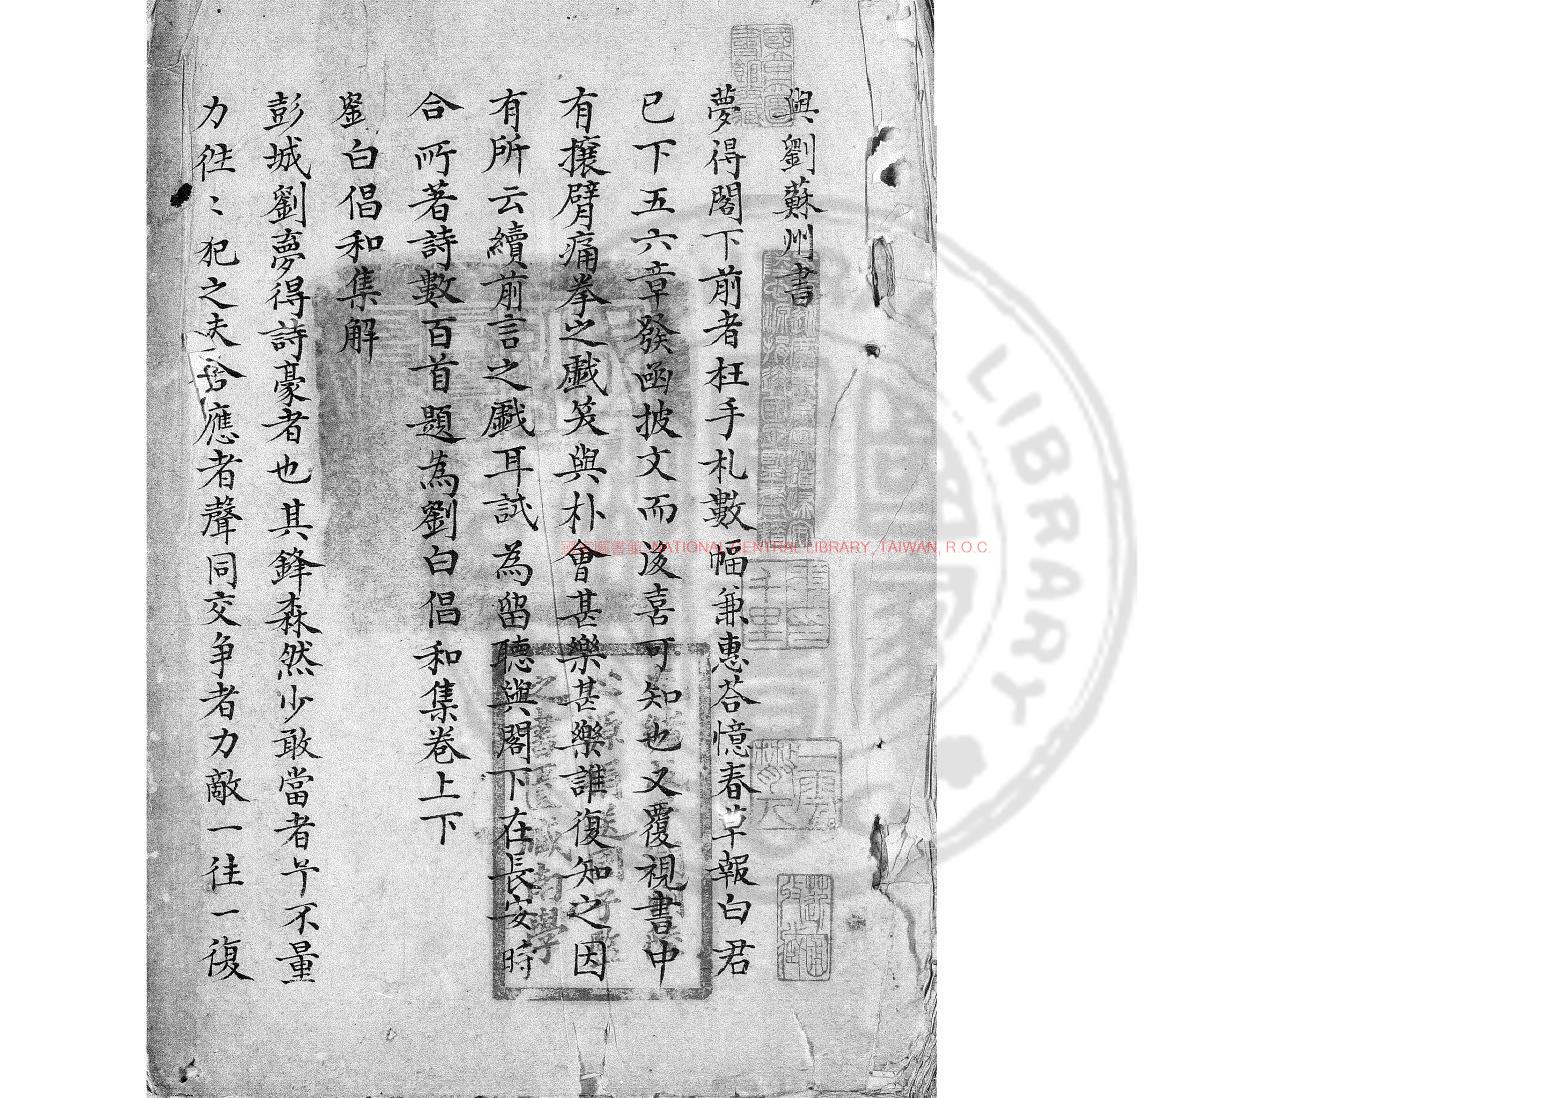 與劉蘇州書
夢得閣下前者枉手札數幅兼惠荅憶春草報白君
已下五六章發函披文而後喜可知也又覆視書中
有攘臂痛拳之戲笑與抃會甚樂甚樂誰復知之因
有所云續前言之戲耳試為留聽與閣下在長安時
合所著詩數百首題為劉白倡和集卷上下
劉白倡和集解
彭城劉夢得詩豪者也其鋒森然少敢當者予不量
力往〻犯之夫合應者聲同交争者力敵一往一復
NATIONAL CENTRAL LIBRARY, TAIWAN, R.O.C.
LIBRARY